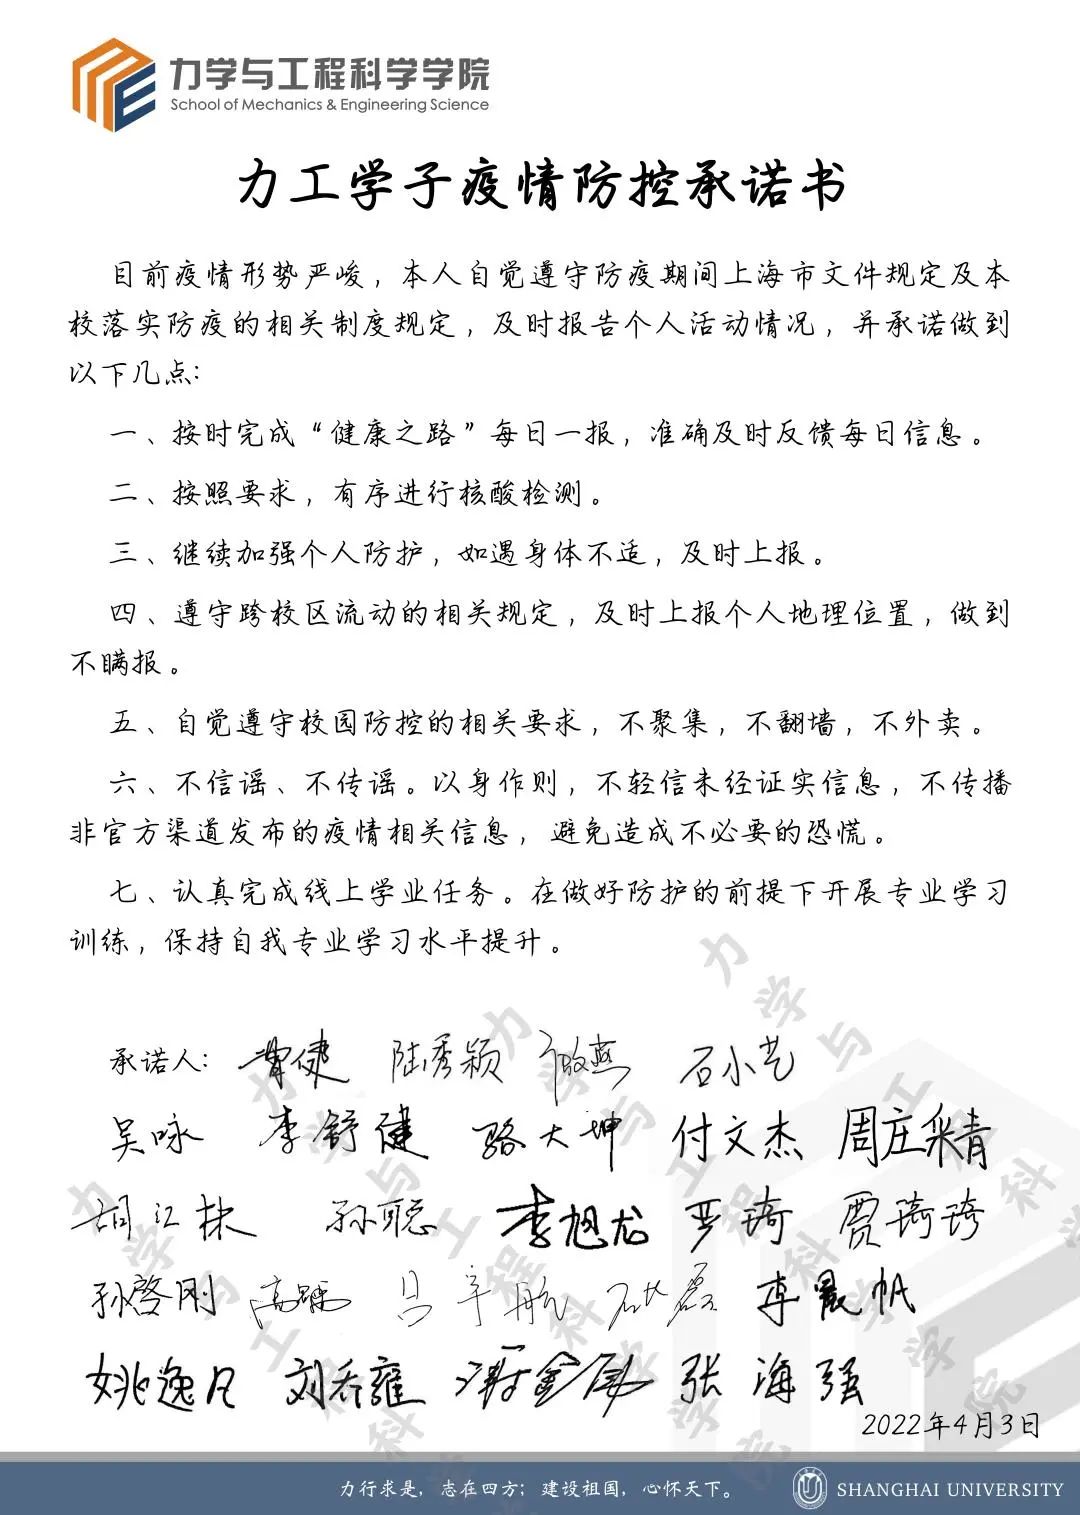 力学与工程科学学院
School of Mechanics & Engineering Science
力工学子疫情防控承诺书
目前疫情形势严峻，本人自觉遵守防疫期间上海市文件规定及本
校落实防疫的相关制度规定，及时报告个人活动情况，并承诺做到
以下几点：
一、按时完成“健康之路”每日一报，准确及时反馈每日信息。
二、按照要求，有序进行核酸检测。
三、继续加强个人防护，如遇身体不适，及时上报。
四、遵守跨校区流动的相关规定，及时上报个人地理位置，做到
不瞒报。
五、自觉遵守校园防控的相关要求，不聚集，不翻墙，不外卖。
六、不信谣、不传谣。以身作则，不轻信未经证实信息，不传播
非官方渠道发布的疫情相关信息，避免造成不必要的恐慌。
七、认真完成线上学业任务。在做好防护的前提下开展专业学习
训练，保持自我专业学习水平提升。
承诺人： 曹健 陆秀颖 石小艺
吴咏 李舒健 骆大坤 付文杰 周庄采青
孙聪 李旭龙 罗琦 贾琦琦
孙启刚 吕宇航 李晨帆
姚逸凡 刘乔雍 张海强
2022年4月3日
力行求是，志在四方；建设祖国，心怀天下。
SHANGHAI UNIVERSITY
力学与工程科学学院
力学与工程科学学院
力学与工程科学学院